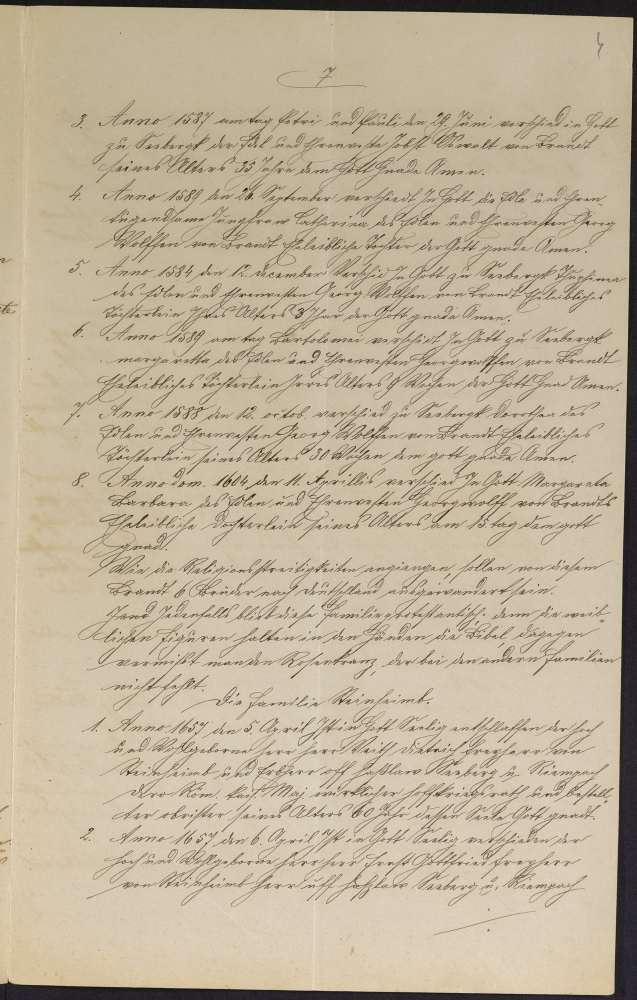 7
3. Anno 1587 am tag Petri und Pauli den 29. Juni verschied in Gott
zu Seebergk der Edel und Ehrenveste Jobst Oswalt von Brandt
seines Alters 35 Jahre dem Gott Gnade Amen.
4. Anno 1589 den 26. September verschiedt In Gott die Edle und Ehren
tugendsame Jungfraw Catharina des Edlen und Ehrenvesten Georg
Wolffen von Brandt Eheleibliche Tochter der Gott gnade Amen.
5. Anno 1584 den 15. december Verschid In Gott zu Seebergk
des Edlen und Ehrenvesten Georg Wolffen von Brandt Eheleibliches
Töchterlein Ihres Alters 3 Jar der Gott gnade Amen.
6. Anno 1589 am tag Bartolomei verschidt In Gott zu Seebergk
margaretta des Edlen und Ehrenvesten Georgwolffen von Brandt
Eheleibliches Töchterlein Ires Alters 9 Wochen der Gott Gnad Amen.
7. Anno 1588 den 12. octob. verschied zu Seebergk Dorothea des
Edlen und Ehrenvesten Georg Wolffen von Brandt Eheleibliches
Töchterlein seines Alters 30 Wochen dem gott gnade Amen.
8. Anno dom. 1604 den 11. Aprillis verschied In Gott Margareta
Barbara des Edlen und Ehrenvesten Georgwolff von Brandts
Eheleibliche Dochterlein seines Alters am 15 tag dem gott
gnad.
Wie die Religionsstreitigkeiten angiengen sollen von diesem
Brandt 6 Brüder nach Deutschland ausgewandert sein.
Jedenfalls blieb diese Familie protestantisch, denn die weib-
lichen Figuren halten in den Händen die Bibel, dagegen
vermißt man den Rosenkranz, der bei den andern Familien
nicht fehlt.
Die Familie Steinheimb.
1. Anno 1657 den 5. April Ist in Gott Seelig entschlaffen der hoch
und Wohlgeborne Herr Herr Veith Dietrich Freyherr von
Steinheimb und Erbherr off Haßlaw Seeberg u. Niempach
Dero Röm. Kais. Maj. würklicher Hoffkriegsrath und bestell-
ter obrister seines Alters 60 Jahr dessen Seele Gott gnadt.
2. Anno 1657 den 6. April Ist in Gott Seelig verschieden der
hoch und Wohlgeborne Herr Herr Ernst Gottfried Freyherr
von Steinheimb Herr uff Haßlaw Seeberg u. Niempach